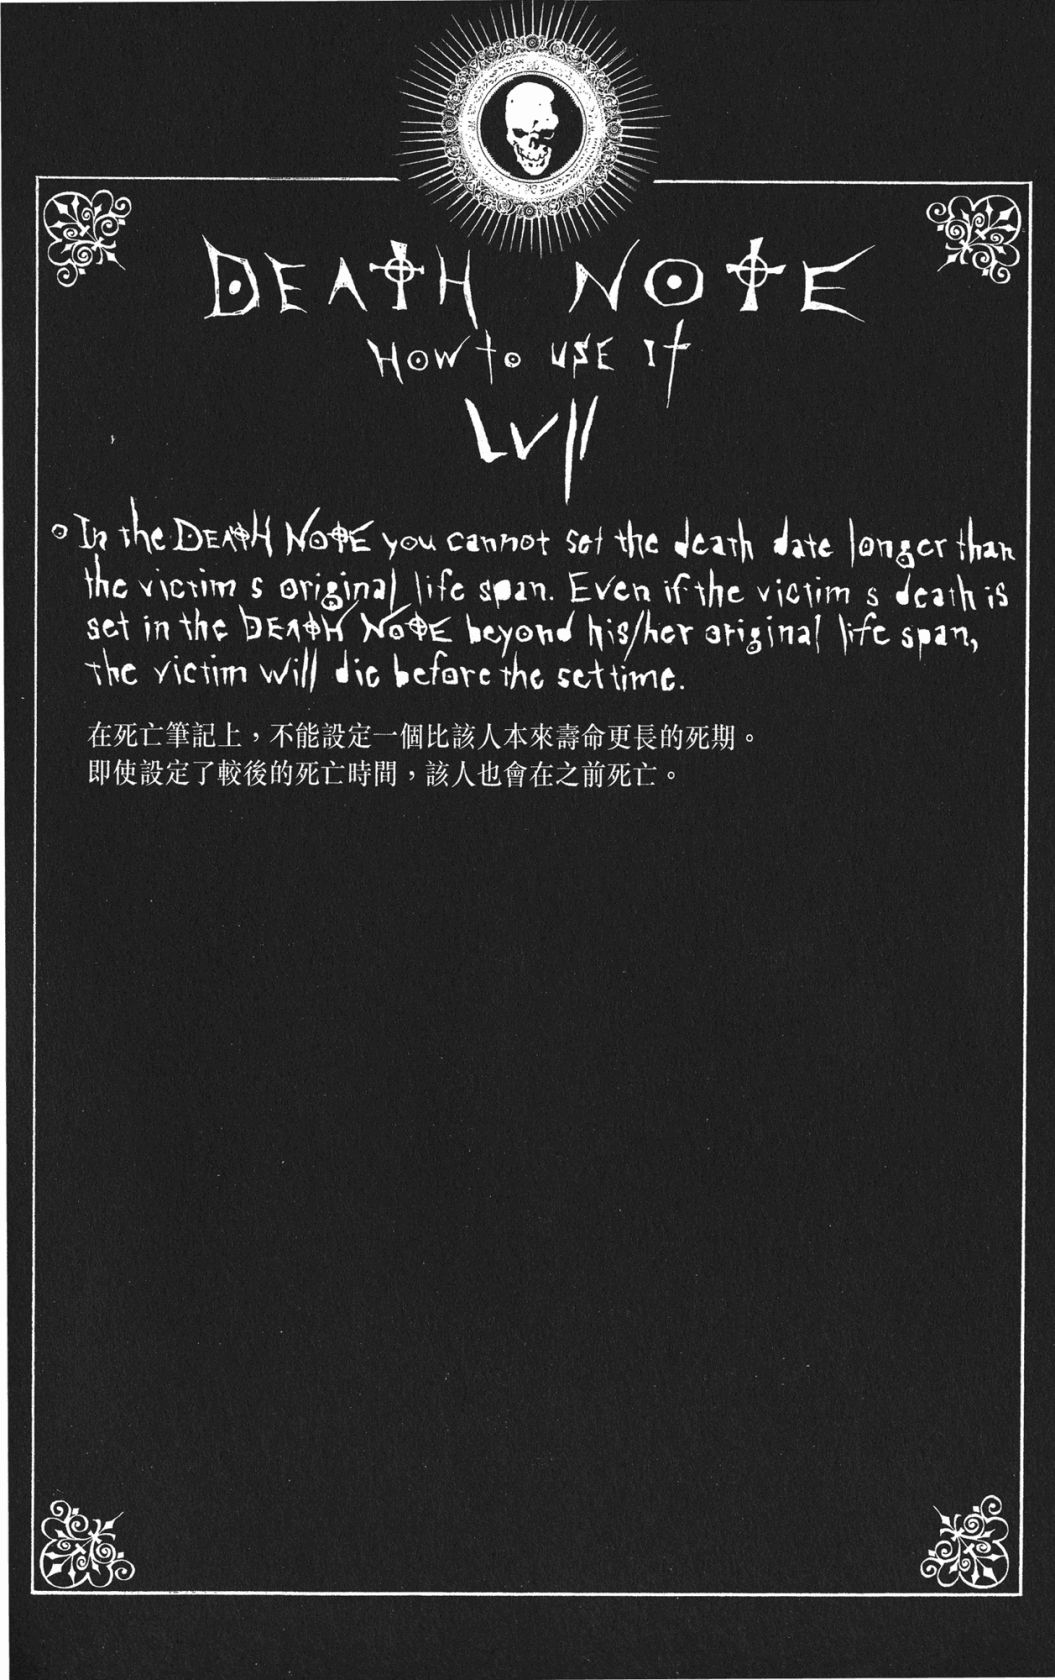 DEATH NOTE
HOW to USE It
LVII
○ In the DEATH NOTE you cannot set the death date longer than
the victim s original life span. Even if the victim s death is
set in the DEATH NOTE beyond his/her original life span,
the victim will die before the set time.
在死亡筆記上，不能設定一個比該人本來壽命更長的死期。
即使設定了較後的死亡時間，該人也會在之前死亡。